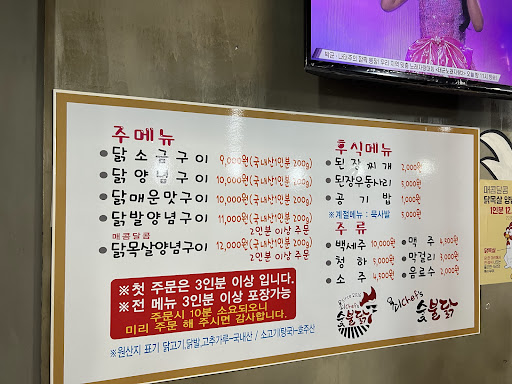 주메뉴
닭소금구이 9,000원(국내산1인분 200g)
닭양념구이 10,000원(국내산1인분 200g)
닭매운맛구이 10,000원(국내산1인분 200g)
닭발양념구이 11,000원(국내산1인분 200g)
2인분 이상 주문
매콤달콤
닭목살양념구이 12,000원(국내산1인분 200g)
2인분 이상 주문
※첫 주문은 3인분 이상 입니다.
※전 메뉴 3인분 이상 포장가능
주문시 10분 소요되오니
미리 주문 해 주시면 감사합니다.
※원산지 표기 닭고기,닭발,고추가루-국내산 / 소고기탕국-호주산
후식메뉴
된장찌개 2,000원
된장우동사리 5,000원
공기밥 1,000원
※계절메뉴 : 묵사발 5,000원
주류
백세주 10,000원
청하 5,000원
소주 4,500원
맥주 4,500원
막걸리 3,000원
음료수 2,000원
숯불닭
숯불닭
매콤달콤
닭목살
1인분 12